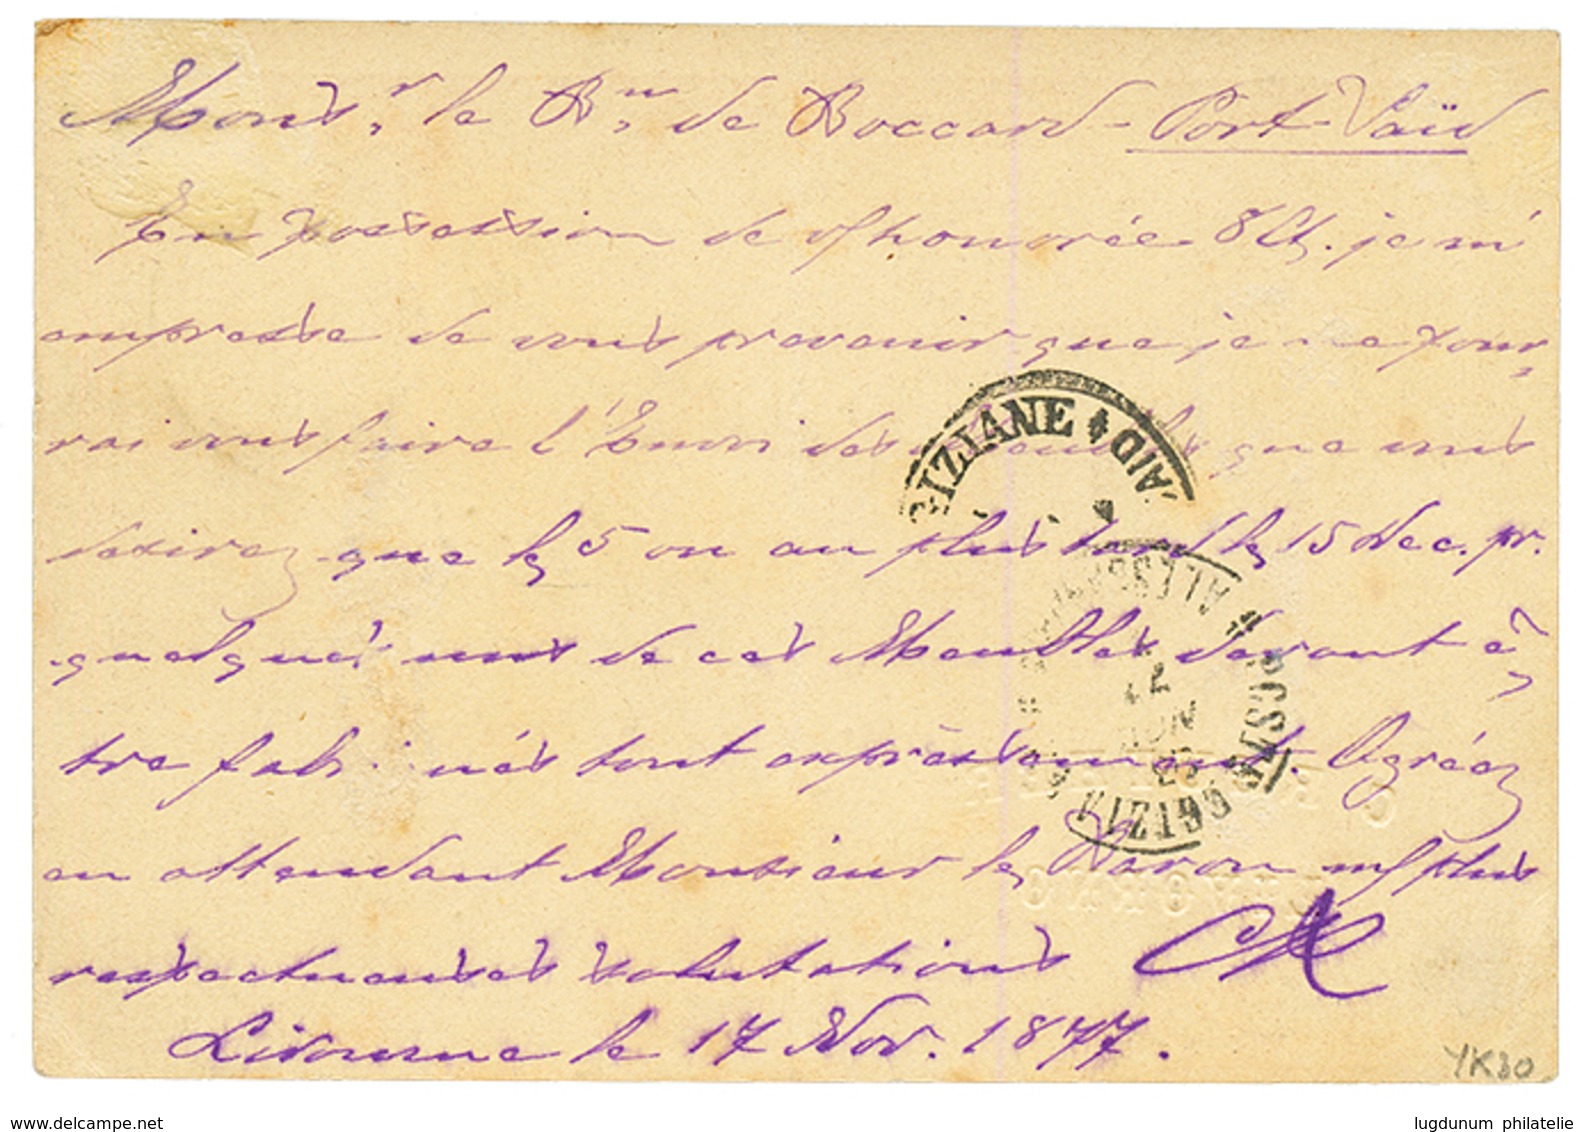 Mons.r le B.n de Boccard - Port-Saïd
En possession de v/honorée 8 Ct. je m'
empresse de vous prevenir que je ne pour,
rai vous faire l'Envoi des meubles que vous
desirez que le 5 ou au plus tard le 15 Dec. pr.
quelques uns de ces Meubles devant ê,
tre fabriqués tout expressement. Agréez
en attendant Monsieur le Baron mes plus
respectueuses salutations
Livourne le 17 Nov. 1877.
GIZIANE
SAID
ALESSAND
POSTE
EGIZIA
LIVORNO
YK80
www.delcampe.net
lugdunum philatelie